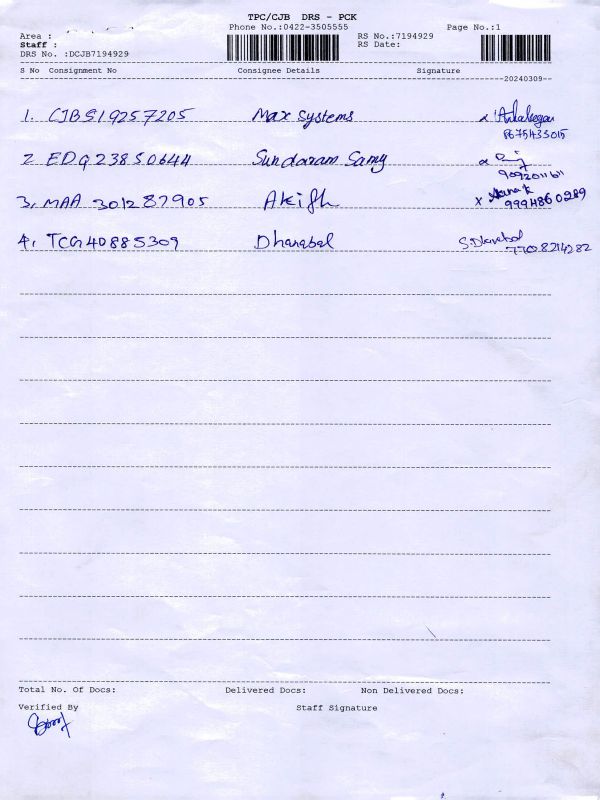 TPC/CJB DRS - PCK
Phone No.:0422-3505555 Page No.:1
Area : RS No.:7194929
Staff : RS Date:
DRS No. :DCJB7194929
S No Consignment No Consignee Details Signature
20240309
1. CJBS19257205 Max Systems
8675433015
2 EDG23850644 Sundaram Samy
9092011611
3, MAA 301287905 Akifh
9994860289
4, TCG40885309 Dhanabal S Dhanabal
7708214282
Total No. Of Docs: Delivered Docs: Non Delivered Docs:
Verified By Staff Signature